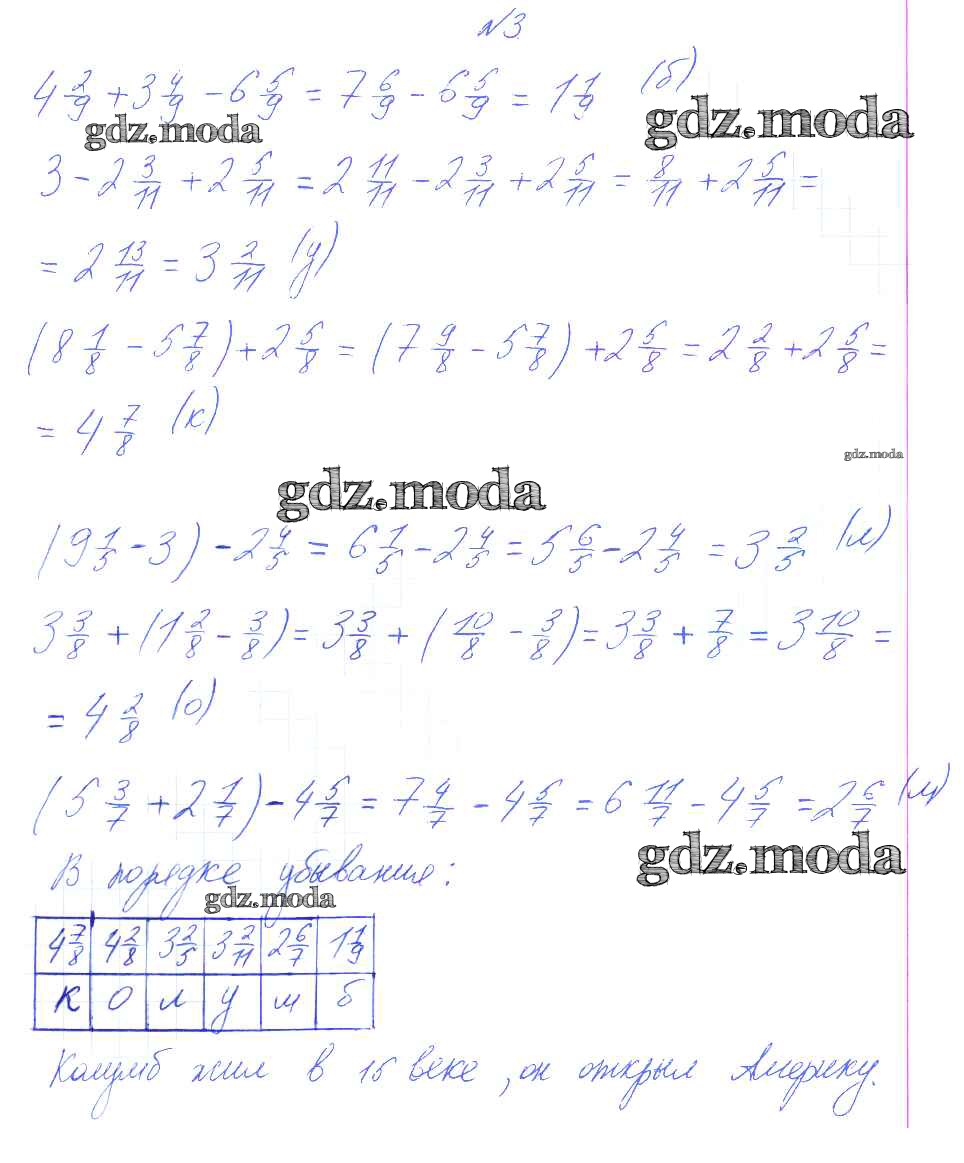 №3
4 2/9 + 3 4/9 - 6 5/9 = 7 6/9 - 6 5/9 = 1 1/9 (б)
gdz.moda
gdz.moda
3 - 2 3/11 + 2 5/11 = 2 11/11 - 2 3/11 + 2 5/11 = 8/11 + 2 5/11 =
= 2 13/11 = 3 2/11 (у)
(8 1/8 - 5 7/8) + 2 5/8 = (7 9/8 - 5 7/8) + 2 5/8 = 2 2/8 + 2 5/8 =
= 4 7/8 (к)
gdz.moda
gdz.moda
(9 1/5 - 3) - 2 4/5 = 6 1/5 - 2 4/5 = 5 6/5 - 2 4/5 = 3 2/5 (л)
3 3/8 + (1 2/8 - 3/8) = 3 3/8 + (10/8 - 3/8) = 3 3/8 + 7/8 = 3 10/8 =
= 4 2/8 (о)
(5 3/7 + 2 1/7) - 4 5/7 = 7 4/7 - 4 5/7 = 6 11/7 - 4 5/7 = 2 6/7 (м)
gdz.moda
В порядке убывания:
gdz.moda
4 7/8 4 2/8 3 2/5 3 2/11 2 6/7 1 1/9
К О л у м б
Колумб жил в 15 веке, он открыл Америку.